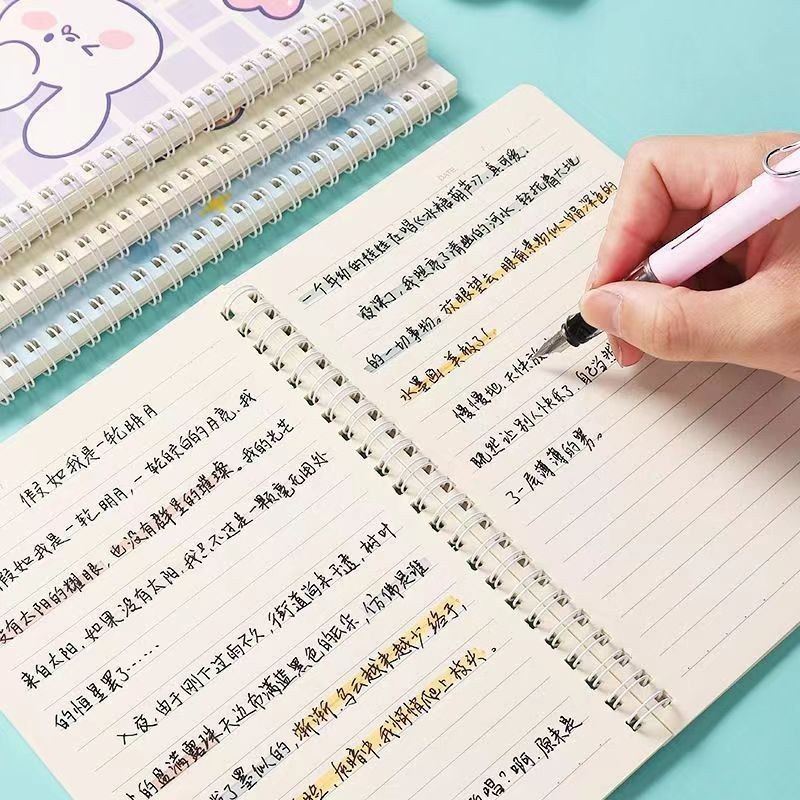 假如我是一轮明月
假如我是一轮明月,一轮皎白的月亮,我
没有太阳的耀眼,也没有群星的璀璨。我的光芒
来自太阳,如果没有太阳,我只不过是一颗毫无用处
的恒星罢了……
入夜,由于刚下过雨不久,街道尚未干透,树叶
的盈满露珠天边布满蓝黑色的云朵,仿佛是谁
了墨似的,渐渐乌云越来越少终于,
脸,灰暗中,我悄悄爬上枝头。
唱?啊,原来是
DATE
一个年幼的娃娃在唱《冰糖葫芦》,真可爱。
夜深了,我照亮了清幽的河水,轻抚着大地
的一切事物。放眼望去,眼前景物似一幅深色的
水墨画,美极了!
慢慢地,天快
既然让别人快乐了,自己当
了一层薄薄的雾。